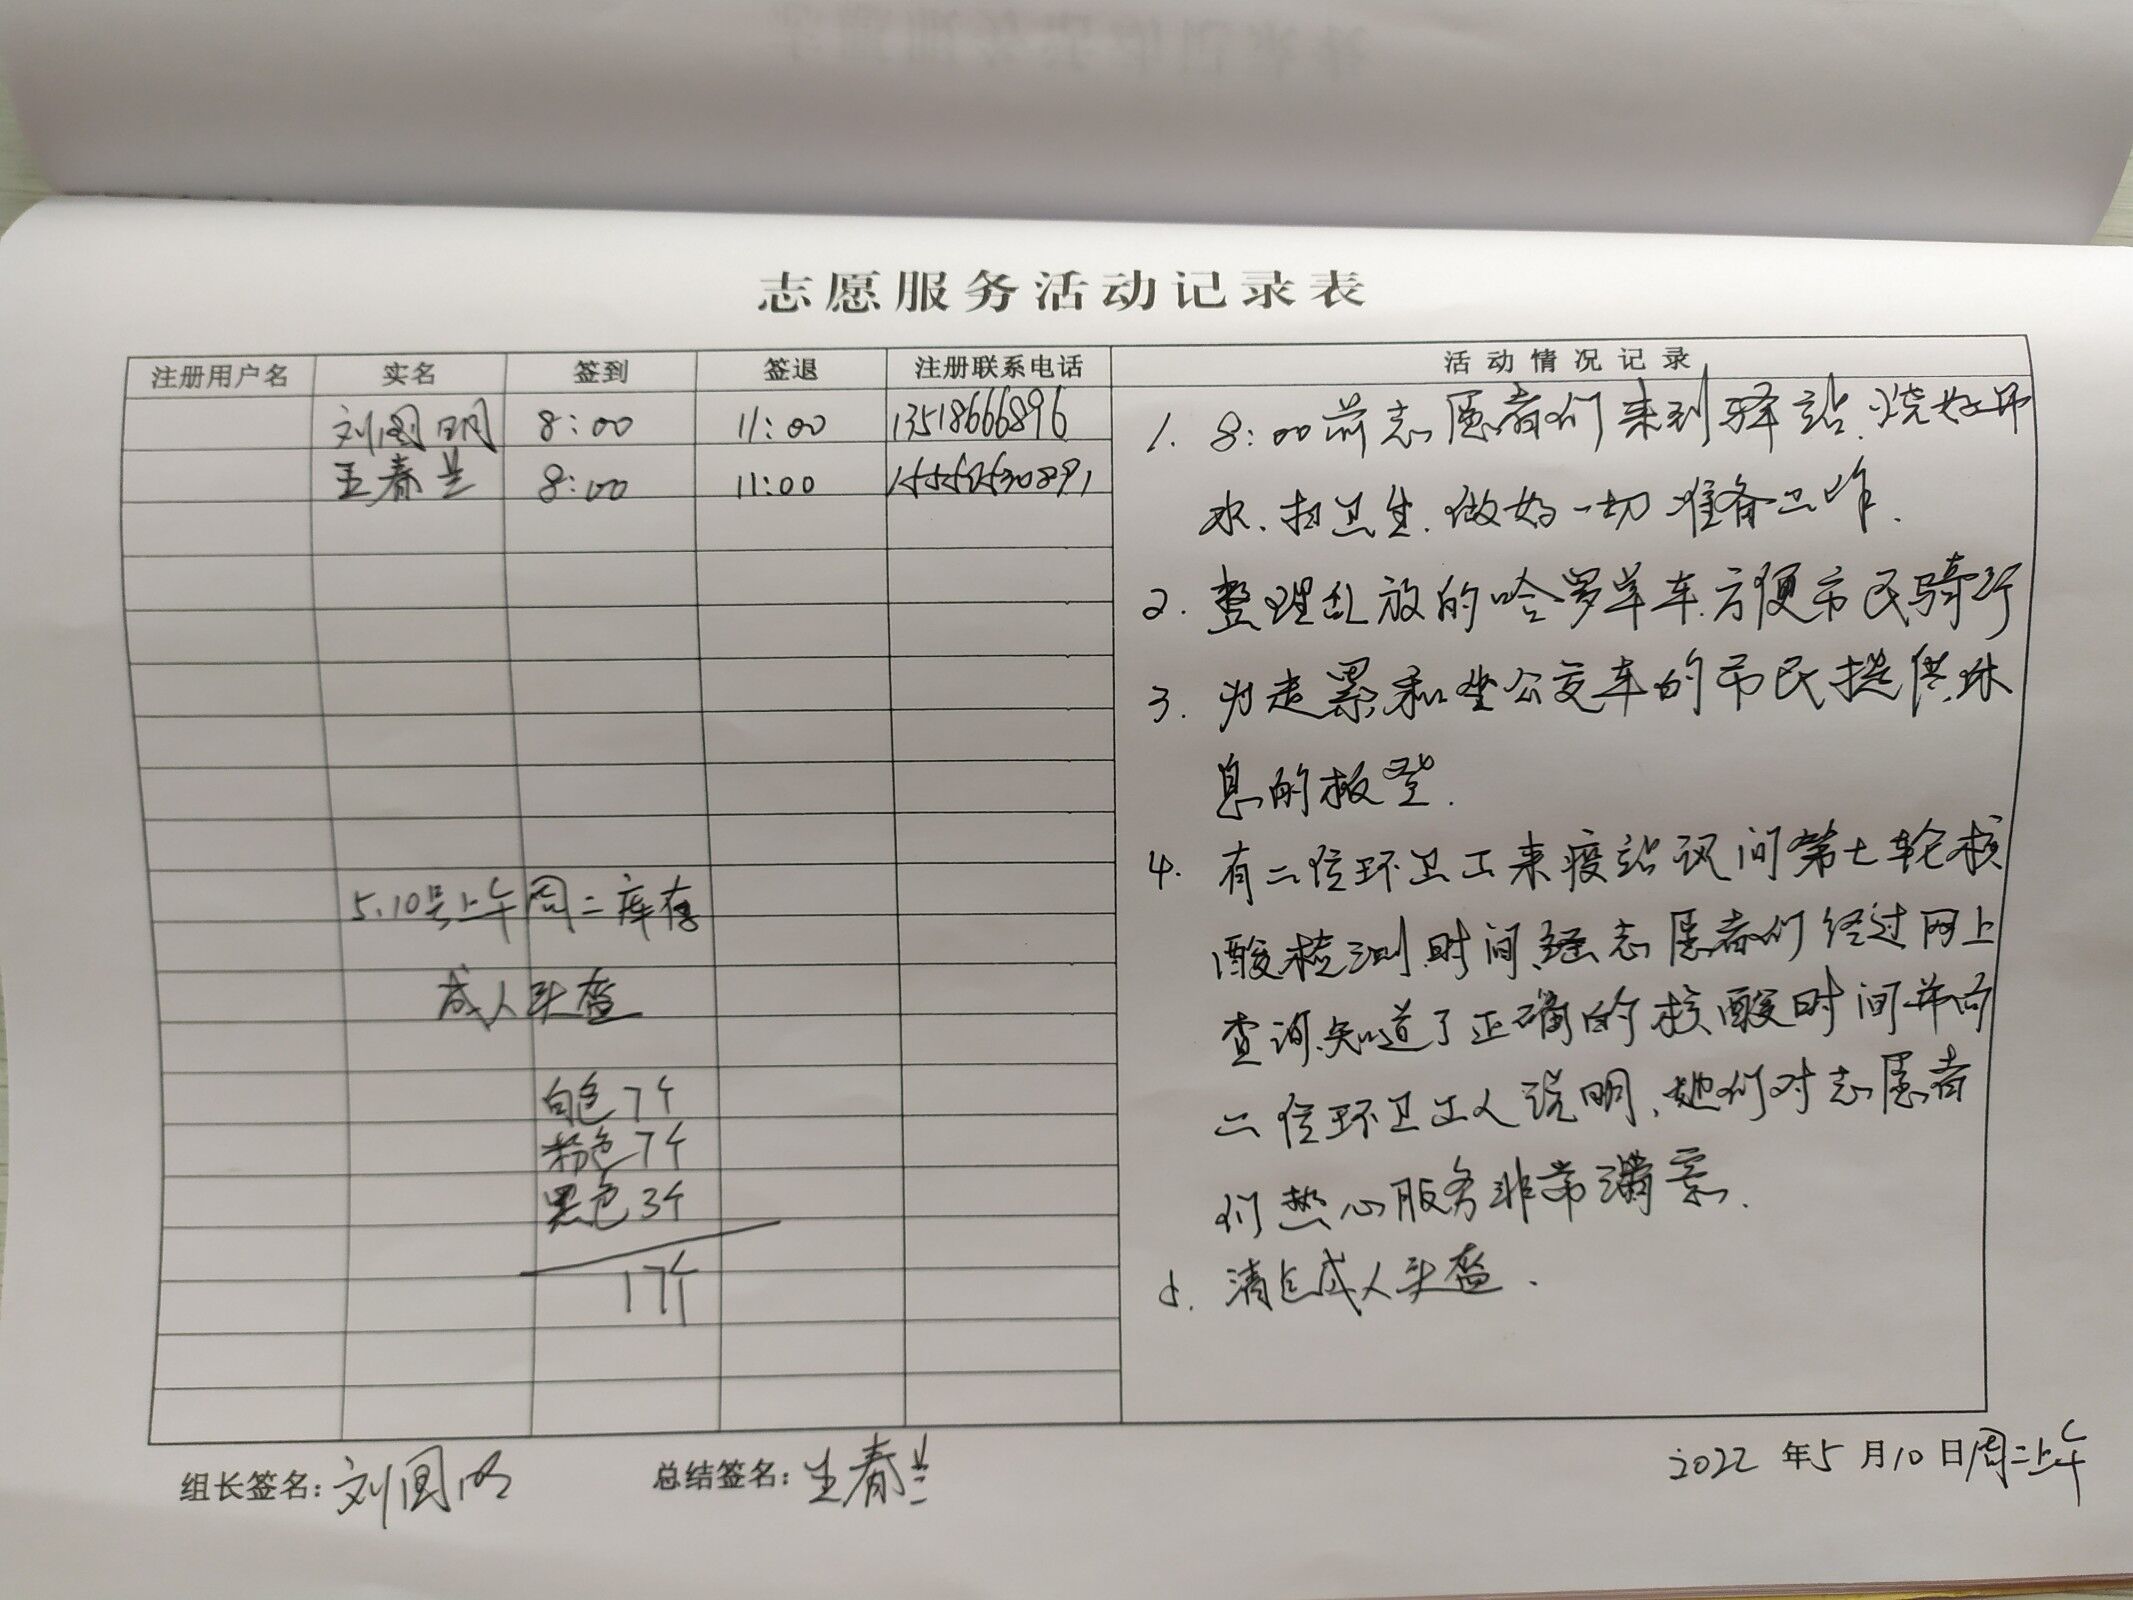 志愿服务活动记录表
注册用户名 实名 签到 签退 注册联系电话 活动情况记录
刘国明 8:00 11:00 13518666896
王春兰 8:00 11:00
1. 8:00前志愿者们来到驿站、烧好开
水、扫卫生、做好一切准备工作.
2. 整理乱放的哈罗单车.方便市民骑行
3. 为走累和坐公交车的市民提供休
息的板凳.
4. 有二位环卫工来疫站识问第七轮核
酸检测时间、志愿者们经过网上
查询、知道了正确的核酸时间并向
二位环卫工人说明、她们对志愿者
们热心服务非常满意.
5. 清点成人头盔.
5.10号上午周二库存
成人头盔
白色7个
粉色7个
黑色3个
17个
组长签名: 刘国明 总结签名: 王春兰 2022年5月10日周二上午